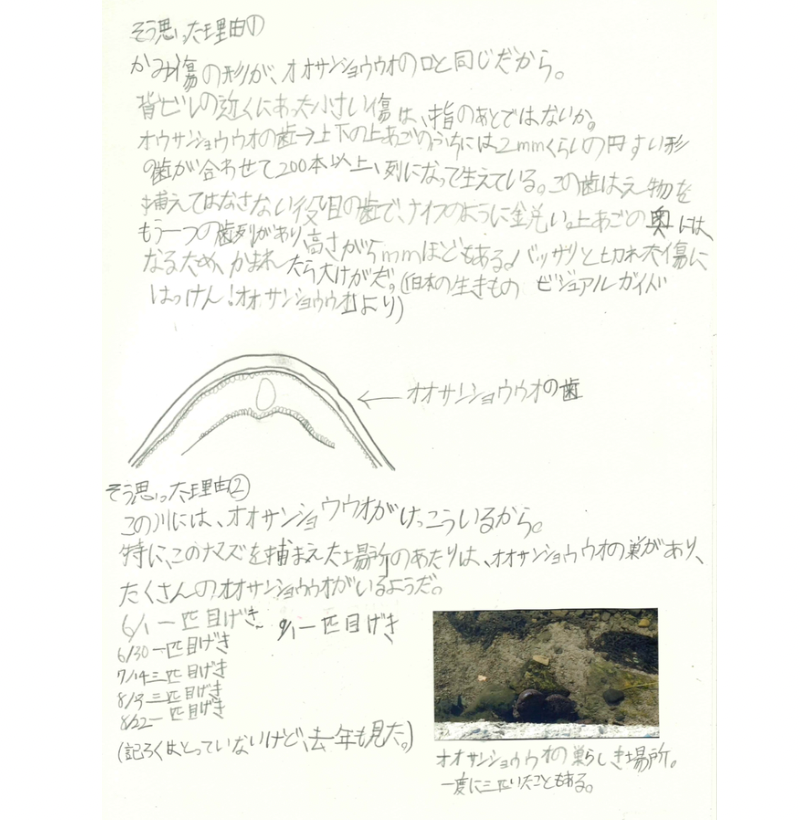 そう思った理由①
かみ傷の形が、オオサンショウウオの口と同じだから。
背ビレの近くにあった小さい傷は、指のあとではないか。
オウサンショウウオの歯→上下の上あごのうちには2mmくらいの円すい形
の歯が合わせて200本以上、列になって生えている。この歯はえ物を
捕えてはなさない役目の歯で、ナイフのように鋭い。上あごの奥には、
もう一つの歯列があり、高さが5mmほどもある。バッサリと切れ大傷に
なるため、かまれたら大けがだ。(日本の生きもの ビジュアルガイド
はっけん!オオサンショウウオより)
←オオサンショウウオの歯
そう思った理由②
この川には、オオサンショウウオがけっこういるから。
特に、このナマズを捕まえた場所のあたりは、オオサンショウウオの巣があり、
たくさんのオオサンショウウオがいるようだ。
6/1一匹目げき 9/1一匹目げき
6/30一匹目げき
7/14三匹目げき
8/3三匹目げき
8/22一匹目げき
(記ろくはとっていないけど、去年も見た。)
オオサンショウウオの巣らしき場所。
一度に三匹いたこともある。